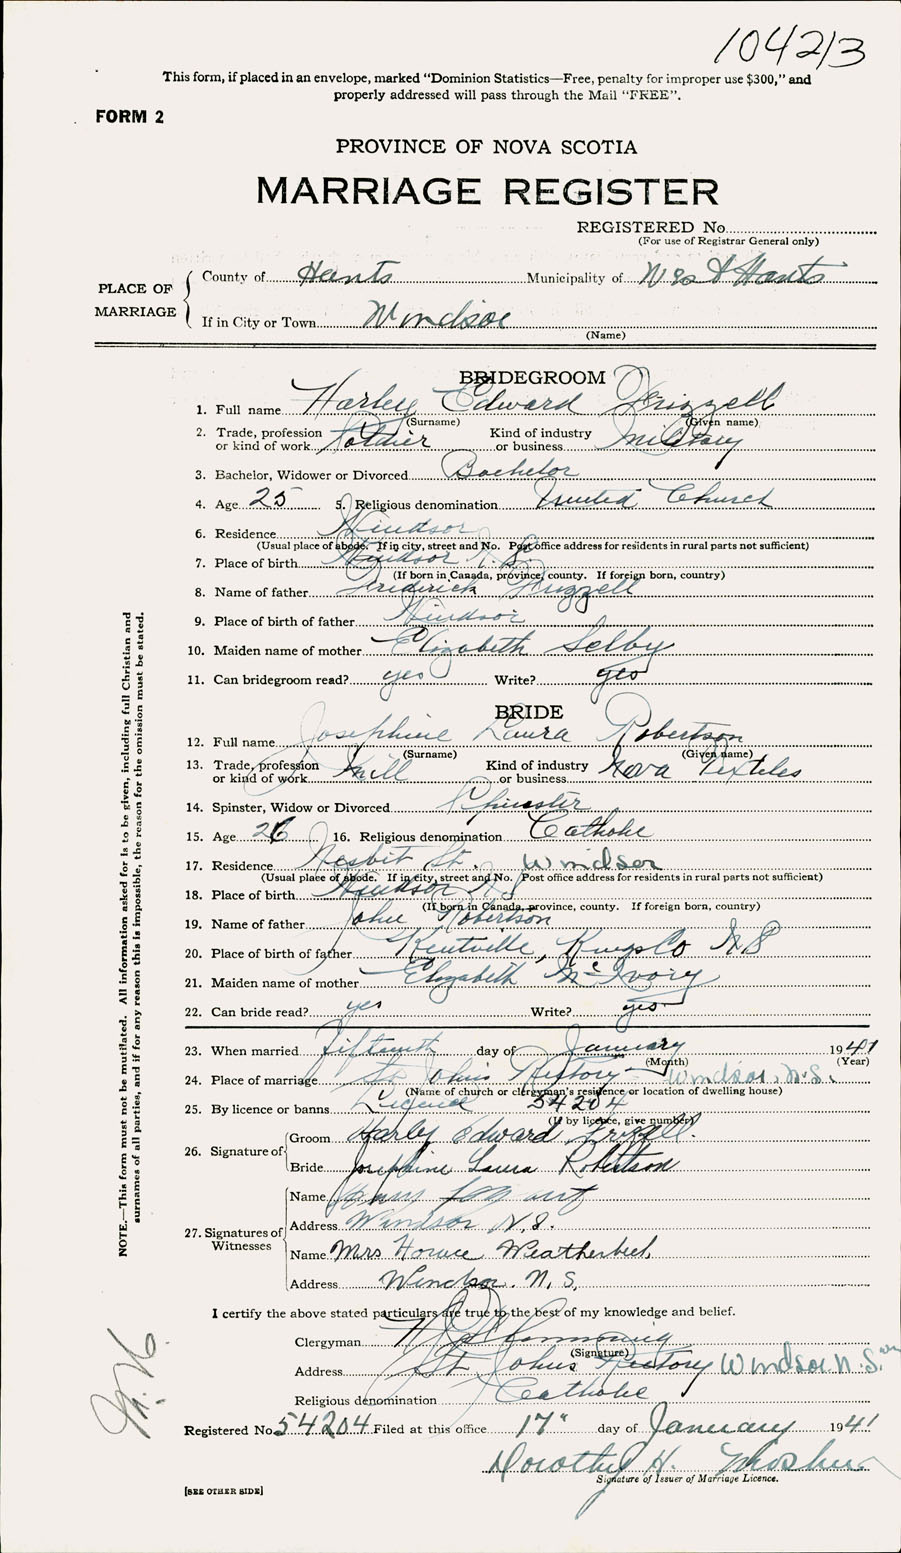 104213
This form, if placed in an envelope, marked “Dominion Statistics—Free, penalty for improper use $300,” and
properly addressed will pass through the Mail “FREE”.
FORM 2
PROVINCE OF NOVA SCOTIA
MARRIAGE REGISTER
REGISTERED No.
(For use of Registrar General only)
PLACE OF MARRIAGE
County of Hants Municipality of West Hants
If in City or Town Windsor
(Name)
BRIDEGROOM
1. Full name Harley Edward Frizzell
(Surname) (Given name)
2. Trade, profession or kind of work Soldier Kind of industry or business Military
3. Bachelor, Widower or Divorced Bachelor
4. Age 25 5. Religious denomination United Church
6. Residence Windsor
(Usual place of abode. If in city, street and No. Post office address for residents in rural parts not sufficient)
7. Place of birth Windsor N.S.
(If born in Canada, province, county. If foreign born, country)
8. Name of father Frederick Frizzell
9. Place of birth of father Windsor
10. Maiden name of mother Elizabeth Selby
11. Can bridegroom read? yes Write? yes
BRIDE
12. Full name Josephine Laura Robertson
(Surname) (Given name)
13. Trade, profession or kind of work Mill Kind of industry or business Nova Textiles
14. Spinster, Widow or Divorced
15. Age 26 16. Religious denomination Catholic
17. Residence Nesbit St. Windsor
(Usual place of abode. If in city, street and No. Post office address for residents in rural parts not sufficient)
18. Place of birth Windsor N.S
(If born in Canada, province, county. If foreign born, country)
19. Name of father John Robertson
20. Place of birth of father Kentville, Kings Co N.S
21. Maiden name of mother Elizabeth McIvory
22. Can bride read? yes Write? yes
23. When married fifteenth day of January 1941
(Month) (Year)
24. Place of marriage St John's Rectory - Windsor, N.S.
(Name of church or clergyman's residence or location of dwelling house)
25. By licence or banns Licence 54204
(If by licence, give number)
26. Signature of
Groom Harley Edward Frizzell.
Bride Josephine Laura Robertson
27. Signatures of Witnesses
Name
Address Windsor N.S.
Name Mrs Horace
Address Windsor. N.S.
I certify the above stated particulars are true to the best of my knowledge and belief.
Clergyman
(Signature)
Address St Johns Rectory Windsor N.S.
Religious denomination Catholic
Registered No. 54204 Filed at this office 17" day of January 1941
Dorothy H. Mosher
Signature of Issuer of Marriage Licence.
[SEE OTHER SIDE]
NOTE.—This form must not be mutilated. All information asked for is to be given, including full Christian and
surnames of all parties, and if for any reason this is impossible, the reason for the omission must be stated.